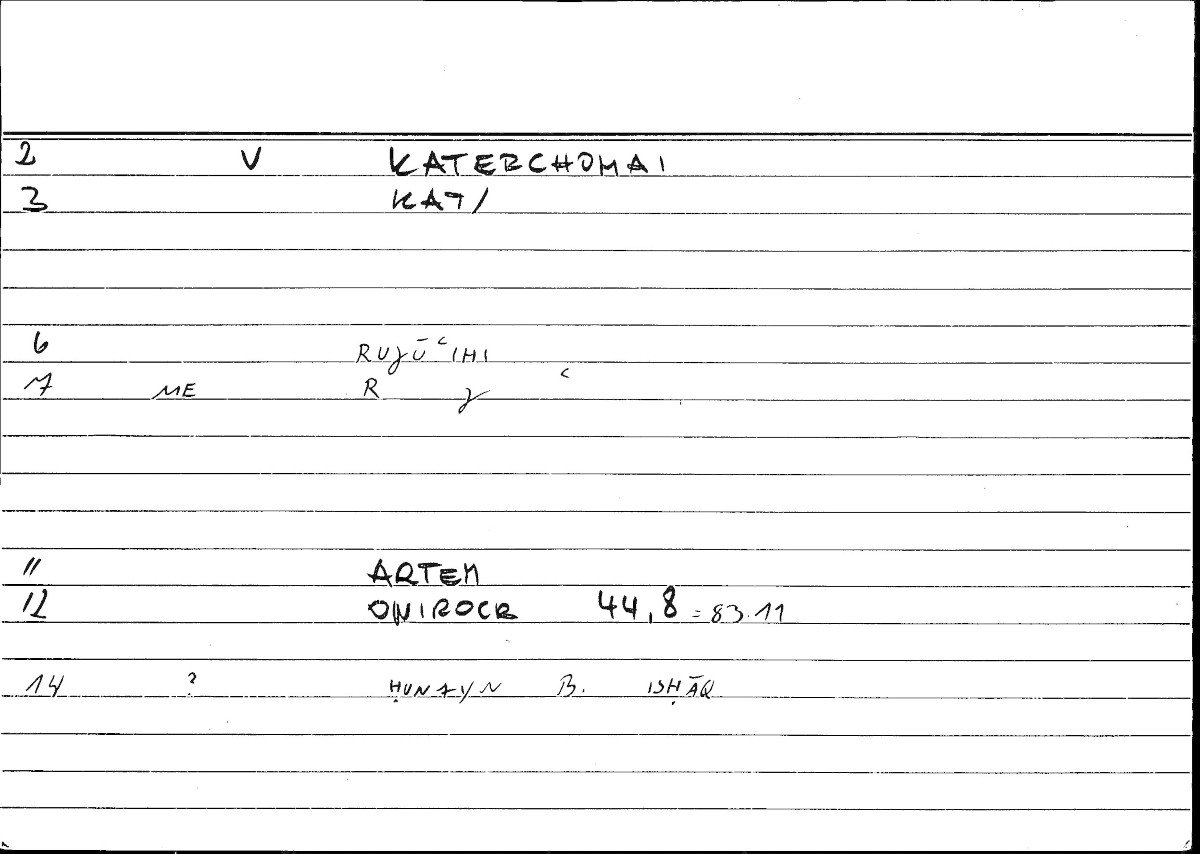 2 V KATERCHOMAI
3 KAT/
6 RUJŪʿIHI
7 ME R J ʿ
11 ARTEM
12 ONIROCR 44,8 = 83.11
14 ? ḤUNAYN B. ISḤĀQ